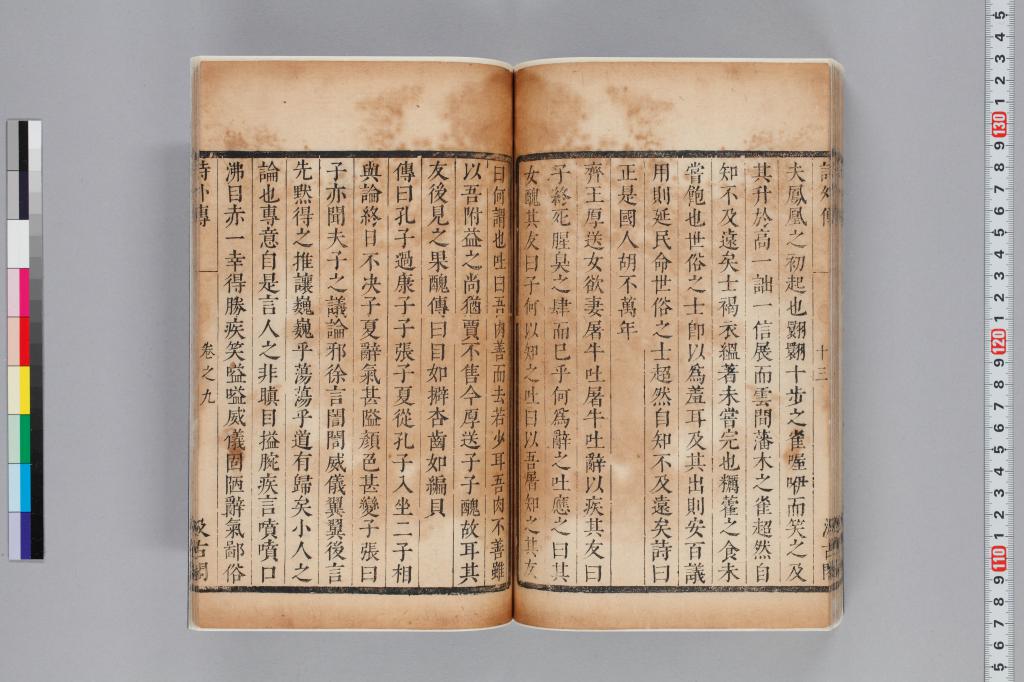 詩外傳
十三
汲古閣
夫鳳凰之初起也翾翾十步之雀喔咿而笑之及
其升於高一詘一信展而雲間藩木之雀超然自
知不及遠矣士褐衣縕著未嘗完也糲藿之食未
嘗飽也世俗之士卽以爲羞耳及其出則安百議
用則延民命世俗之士超然自知不及遠矣詩曰
正是國人胡不萬年
齊王厚送女欲妻屠牛吐屠牛吐辭以疾其友曰
子終死腥臭之肆而已乎何爲辭之吐應之曰其
女醜其友曰子何以知之吐曰以吾屠知之其友
曰何謂也吐曰吾肉善而去若少耳吾肉不善雖
以吾附益之尚猶賈不售今厚送子子醜故耳其
友後見之果醜傳曰目如擗杏齒如編貝
傳曰孔子過康子子張子夏從孔子入坐二子相
與論終日不決子夏辭氣甚隘顏色甚變子張曰
子亦聞夫子之議論邪徐言誾誾威儀翼翼後言
先黙得之推讓巍巍乎蕩蕩乎道有歸矣小人之
論也專意自是言人之非瞋目搤腕疾言噴噴口
沸目赤一幸得勝疾笑嗌嗌威儀固陋辭氣鄙俗
詩外傳
卷之九
汲古閣